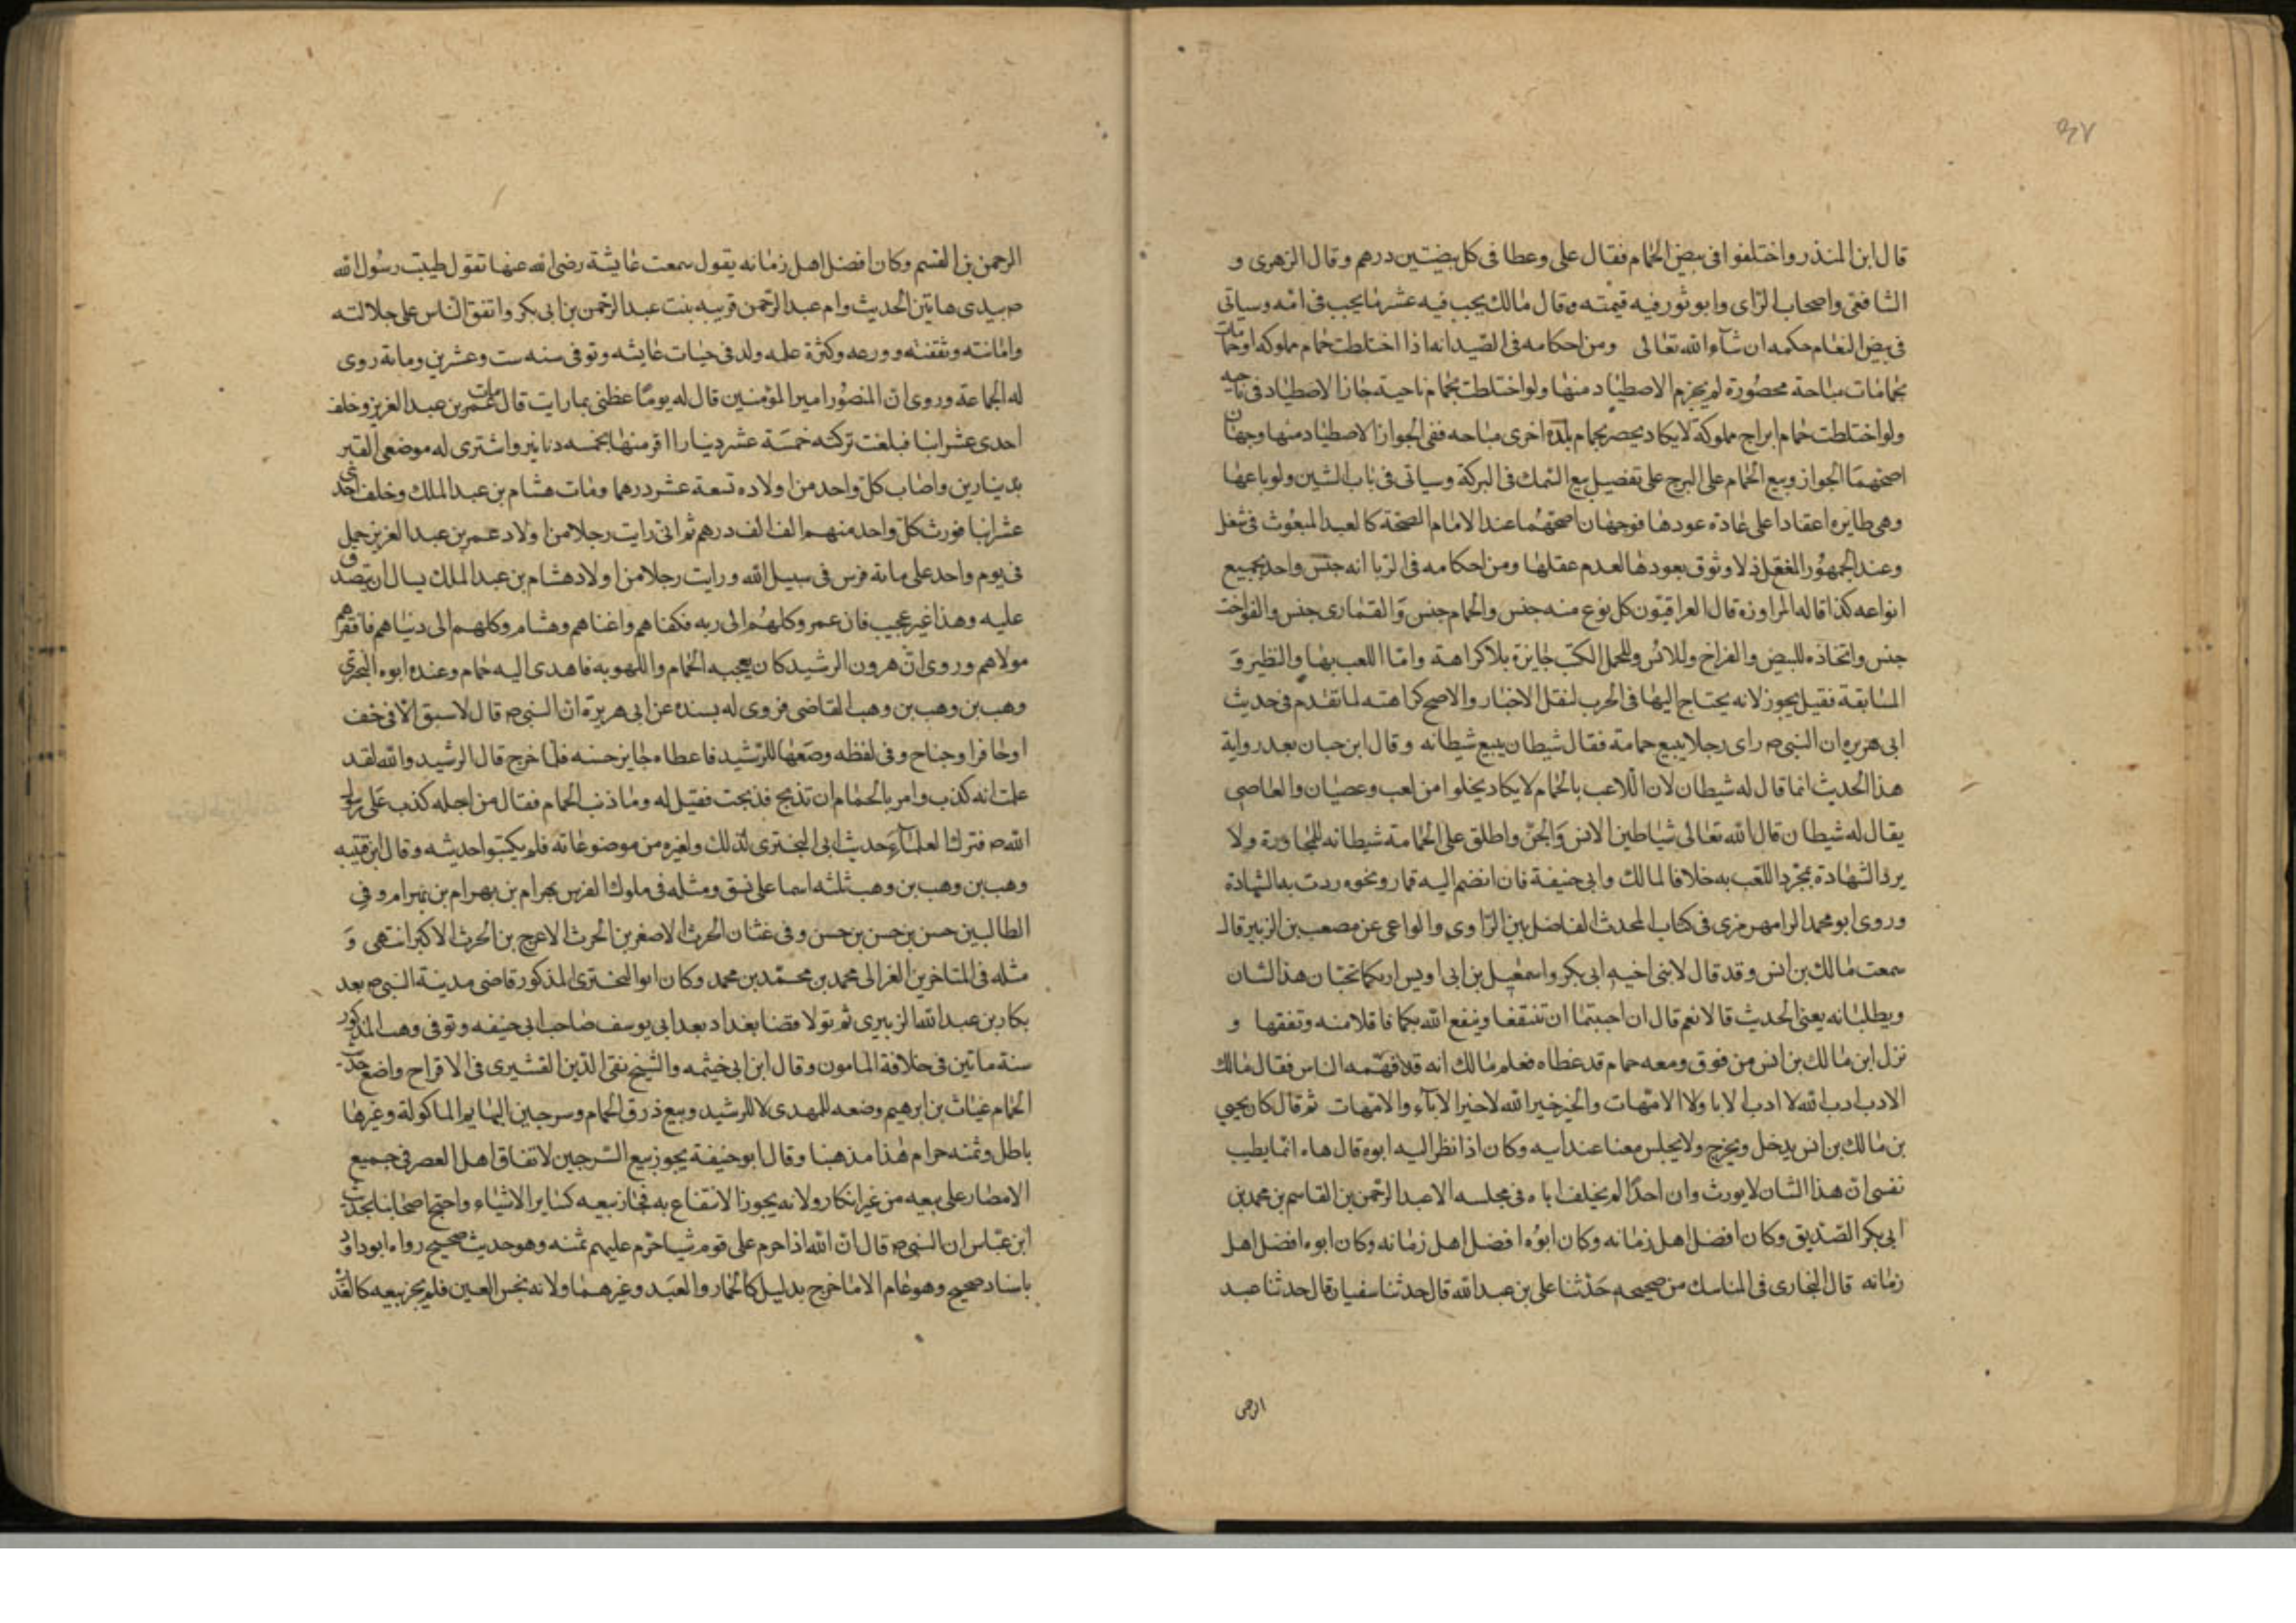 ٩٧
قال ابن المنذر واختلفوا فى بيض الحمام فقال على وعطا فى كل بيضتين درهم وقال الزهرى و
الشافعى واصحاب الراى وابو ثور فيه قيمته وقال مالك يجب فيه عشر ما يجب فى امه وسياتى
فى بيض النعام حكمه ان شاء الله تعالى ومن احكامه فى الصيد انه اذا اختلطت حمام مملوكه او حمامات
بحمامات مباحة محصورة لم يجزم الاصطياد منها ولو اختلطت بحمام ناحية جاز الاصطياد فى ناحيه
ولو اختلطت حمام ابراج مملوكة لا يكاد يحصر بحمام بلدة اخرى مباحه ففى الجواز الاصطياد منها وجهان
اصحهما الجواز وبيع الحمام على البرج على تفصيل بيع السمك فى البركة وسياتى فى باب الشين ولو باعها
وهى طايره اعقادا على عادة عودها فوجهان اصحهما عند الامام الصحة كالعبد المبعوث فى شغل
وعند الجمهور المنع اذ لا وثوق بعودها لعدم عقلها ومن احكامه فى الربا انه جنس واحد بجميع
انواعه كذا قاله المراوزة قال العراقيون كل نوع منه جنس والحمام جنس والقمارى جنس والفواخت
جنس واتخاذه للبيض والفراخ وللانس وللحمل الكتب جايزة بلا كراهة واما اللعب بها والنظير و
المسابقة فقيل يجوز لانه يحتاج اليها فى الحرب لنقل الاخبار والاصح كراهته لما تقدم فى حديث
ابى هريره ان النبى ص راى رجلا يبيع حمامة فقال شيطان يبيع شيطانه وقال ابن حبان بعد رواية
هذا الحديث انما قال له شيطان لان اللاعب بالحمام لا يكاد يخلوا من لعب وعصيان والعاصى
يقال له شيطان قال الله تعالى شياطين الانس والجن واطلق على الحمامة شيطانه للمجاورة ولا
يرد الشهادة بمجرد اللعب به خلافا لمالك وابى حنيفة فان انضم اليه قمار ونحوه ردت به الشهادة
وروى ابو محمد الرامهرمزى فى كتاب المحدث الفاضل بين الراوى والواعى عن مصعب بن الزبير قال
سمعت مالك بن انس وقد قال لابنى اخيه ابى بكر واسمعيل بن ابى اويس اراكما تحبان هذا الشان
ويطلبانه يعنى الحديث قالا نعم قال ان احببتما ان تنتفعا وينفع الله بكما فاقلا منه وتفقها و
نزل ابن مالك بن انس من فوق ومعه حمام قد غطاه فعلم مالك انه قد فهمه الناس فقال مالك
الادب ادب الله لا ادب الابا ولا الامهات والخير خير الله لا خير الآباء والامهات ثم قال كان يحيى
بن مالك بن انس يدخل ويخرج ولا يجلس معنا عند ابيه وكان اذا نظر اليه ابوه قال هاه انما يطيب
نفسى ان هذا الشان لا يورث وان احدا لم يخلف اباه فى مجلسه الا عبد الرحمن بن القاسم بن محمد بن
ابى بكر الصديق وكان افضل اهل زمانه وكان ابوه افضل اهل زمانه وكان ابوه افضل اهل
زمانه قال البخارى فى المناسك من صحيحه حدثنا على بن عبد الله قال حدثنا سفيان قال حدثنا عبد
الرحمن
الرحمن بن القسم وكان افضل اهل زمانه يقول سمعت عايشة رضى الله عنها تقول طيبت رسول الله
ص بيدى هاتين الحديث وام عبد الرحمن قريبه بنت عبد الرحمن بن ابى بكر واتفق الناس على جلالته
وامانته وثقته وورعه وكثرة علمه ولد فى حيات عايشه وتوفى سنه ست وعشرين ومائة روى
له الجماعة وروى ان المنصور امير المؤمنين قال له يوما عظنى بما رايت قال مات عمر بن عبد العزيز وخلف
احدى عشر ابنا فبلغت تركته خمسة عشر دينارا اقر منها بخمسه دنانير واشترى له موضع القبر
بدينارين واصاب كل واحد من اولاده تسعة عشر درهما ومات هشام بن عبد الملك وخلف احدى
عشر ابنا فورث كل واحد منهم الف الف درهم ثم انى رايت رجلا من اولاد عمر بن عبد العزيز حمل
فى يوم واحد على مائة فرس فى سبيل الله ورايت رجلا من اولاد هشام بن عبد الملك يسال ان يتصدق
عليه وهذا غير عجيب فان عمر وكلهم الى ربه فكفاهم واغناهم وهشام وكلهم الى دنياهم فافقرهم
مولاهم وروى ان هرون الرشيد كان يعجبه الحمام واللهو به فاهدى اليه حمام وعنده ابوه البحترى
وهب بن وهب بن وهب القاضى فروى له بسنده عن ابى هريرة ان النبى ص قال لا سبق الا فى خف
او حافر او جناح وفى لفظه وضعها للرشيد فاعطاه جايز حسنه فلما خرج قال الرشيد والله لقد
علمت انه كذب وامر بالحمام ان تذبح فذبحت فقيل له وما ذنب الحمام فقال من اجله كذب على رسول
الله ص فترك العلماء حديث ابى البخترى لذلك ولغيره من موضوعاته فلم يكتبوا حديثه وقال ابن قتيبه
وهب بن وهب بن وهب ثلثه اسما على نسق ومثله فى ملوك الفرس بهرام بن بهرام بن بهرام وفى
الطالبين حسن بن حسن بن حسن وفى غسان الحرث الاصغر بن الحرث الاعرج بن الحرث الاكبر انتهى و
مثله فى المتاخرين الغزالى محمد بن محمد بن محمد وكان ابو البخترى المذكور قاضى مدينة النبى ص بعد
بكار بن عبد الله الزبيرى ثم تولا قضا بغداد بعد ابى يوسف صاحب ابى حنيفه وتوفى وهب المذكور
سنة ماتين فى خلافة المامون وقال ابن ابى خيثمه والشيخ تقى الدين القشيرى فى الاقراح واضع حديث
الحمام غياث بن ابرهيم وضعه للمهدى لا للرشيد وبيع ذرق الحمام وسرجين البهايم الماكولة وغيرها
باطل وثمنه حرام هذا مذهبنا وقال ابو حنيفة يجوز بيع السرجين لاتفاق اهل العصر فى جميع
الامصار على بيعه من غير انكار ولانه يجوز الانتفاع به فجاز بيعه كساير الاشياء واحتج اصحابنا بحديث
ابن عباس ان النبى ص قال ان الله اذا حرم على قوم شيا حرم عليهم ثمنه وهو حديث صحيح رواه ابو داود
باسناد صحيح وهو عام الا ما خرج بدليل كالحمار والعبد وغيرهما ولانه نجس العين فلم يجز بيعه كالقذ